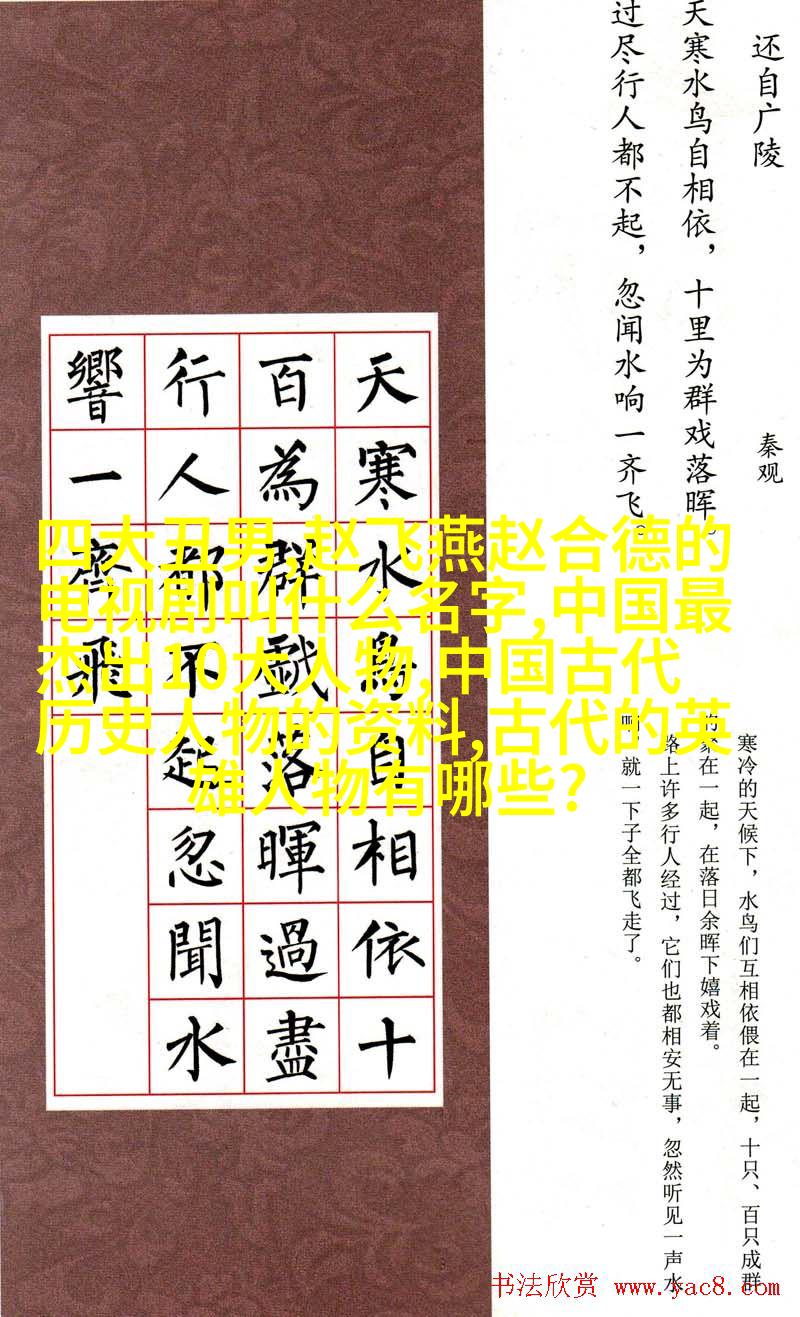 还自广陵
秦观
天寒水鸟自相依，十里为群戏落晖。
过尽行人都不起，忽闻水响一齐飞。
天寒水鳥自相依十
百為群戲落暉過盡
行人都不起忽聞水
響一齊飛
四大丑男,赵飞燕赵合德的
电视剧叫什么名字,中国最
杰出10大人物,中国古代
历史人物的资料,古代的英
雄人物有哪些?
寒冷的天候下，水鸟们互相依偎在一起，十只、百只成群
的聚在一起，在落日余晖下嬉戏着。
路上许多行人经过，它们也都相安无事，忽然听见一声水
响，就一下子全都飞走了。
书法欣赏 www.yac8.com